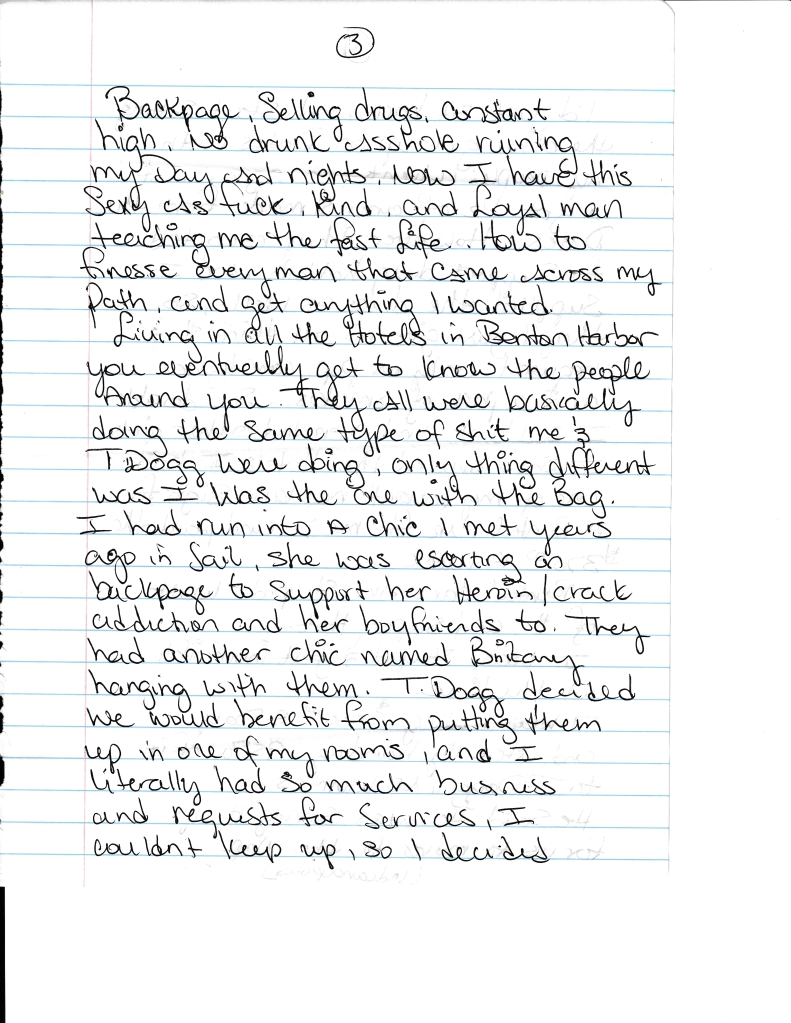 3
Backpage, Selling drugs, constant
high, No drunk Asshole ruining
my Day And nights, Now I have this
Sexy Ass fuck, Kind, and Loyal man
teaching me the fast Life. How to
finesse every man that came Across my
Path, and get anything I wanted.
Living in all the Hotels in Benton Harbor
you eventually get to know the people
Around you. They All were basically
doing the Same type of shit me &
T Dogg were doing, only thing different
was I was the one with the Bag.
I had run into A Chic I met years
ago in Jail, she was escorting on
backpage to Support her Heroin/crack
addiction and her boyfriends to. They
had another chic named Britany
hanging with them. T. Dogg decided
we would benefit from putting them
up in one of my rooms, and I
literally had so much business
and requests for Services, I
couldnt keep up, so I decided